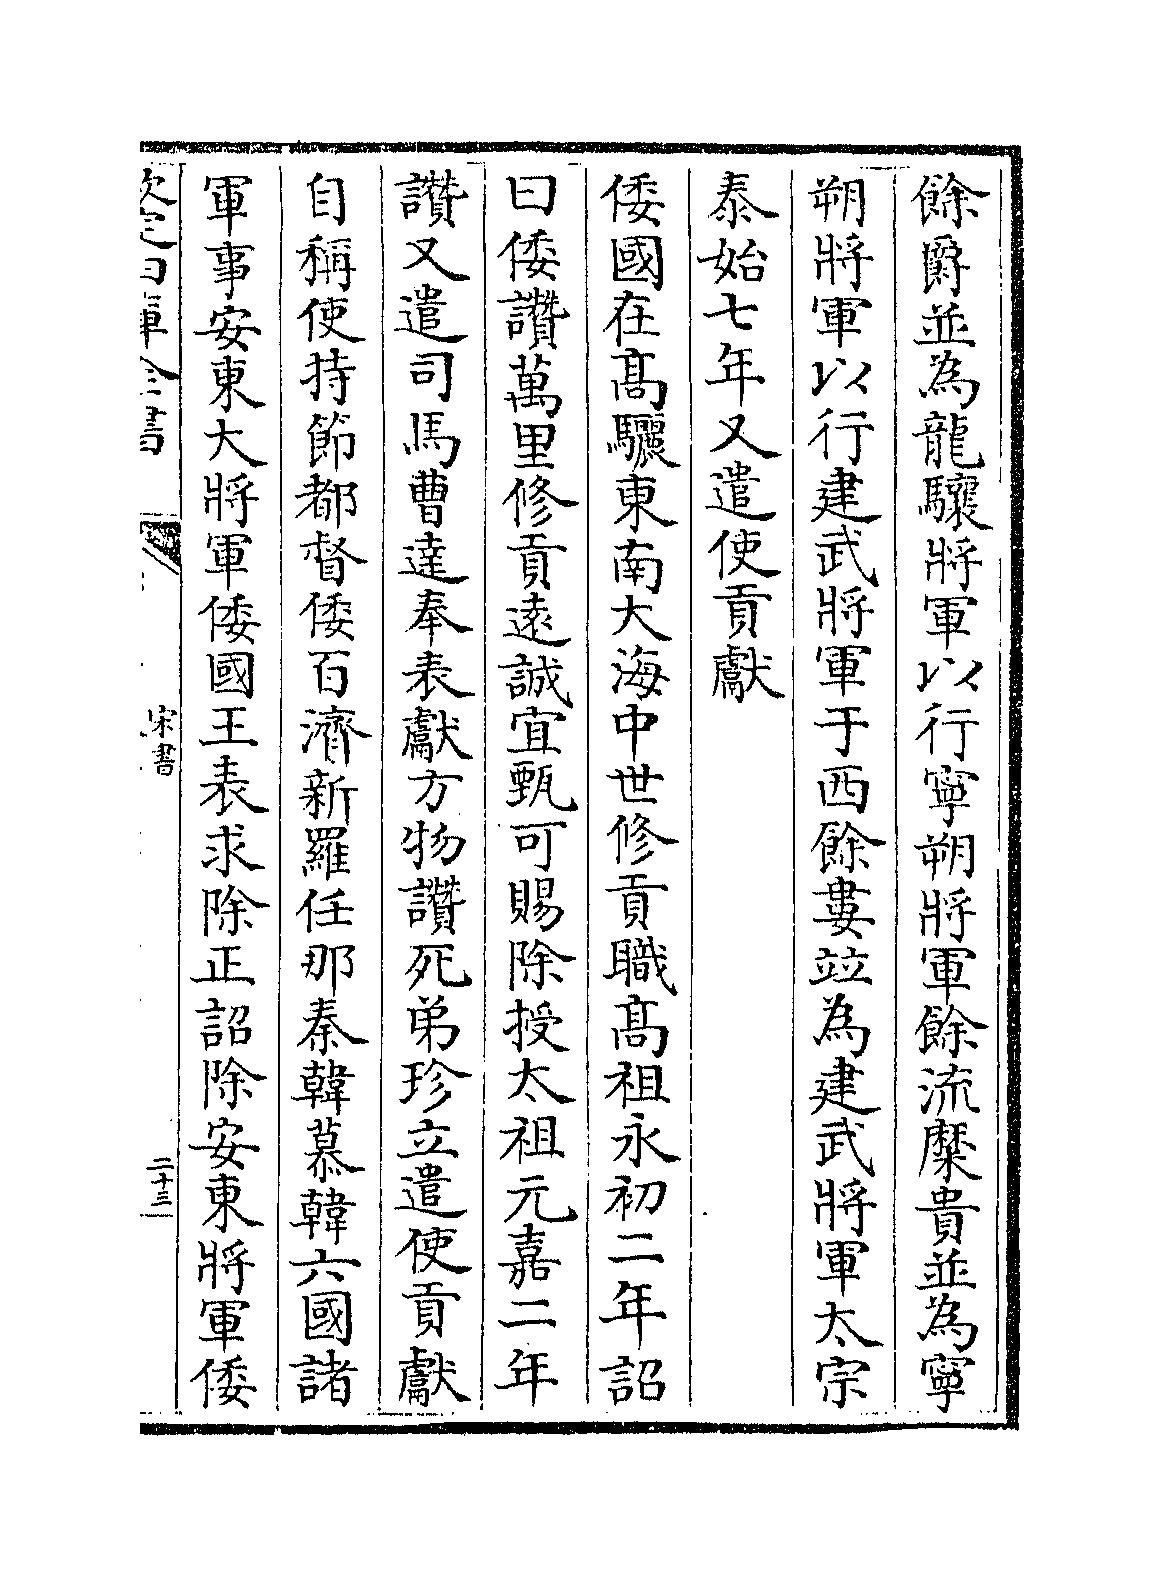 餘爵並為龍驤將軍以行寧朔將軍餘流麋貴並為寧
朔將軍以行建武將軍于西餘婁竝為建武將軍太宗
泰始七年又遣使貢獻
倭國在髙驪東南大海中世修貢職髙祖永初二年詔
曰倭讚萬里修貢逺誠宜甄可賜除授太祖元嘉二年
讚又遣司馬曹達奉表獻方物讚死弟珍立遣使貢獻
自稱使持節都督倭百濟新羅任那秦韓慕韓六國諸
軍事安東大將軍倭國王表求除正詔除安東將軍倭
欽定四庫全書
宋書
二十三